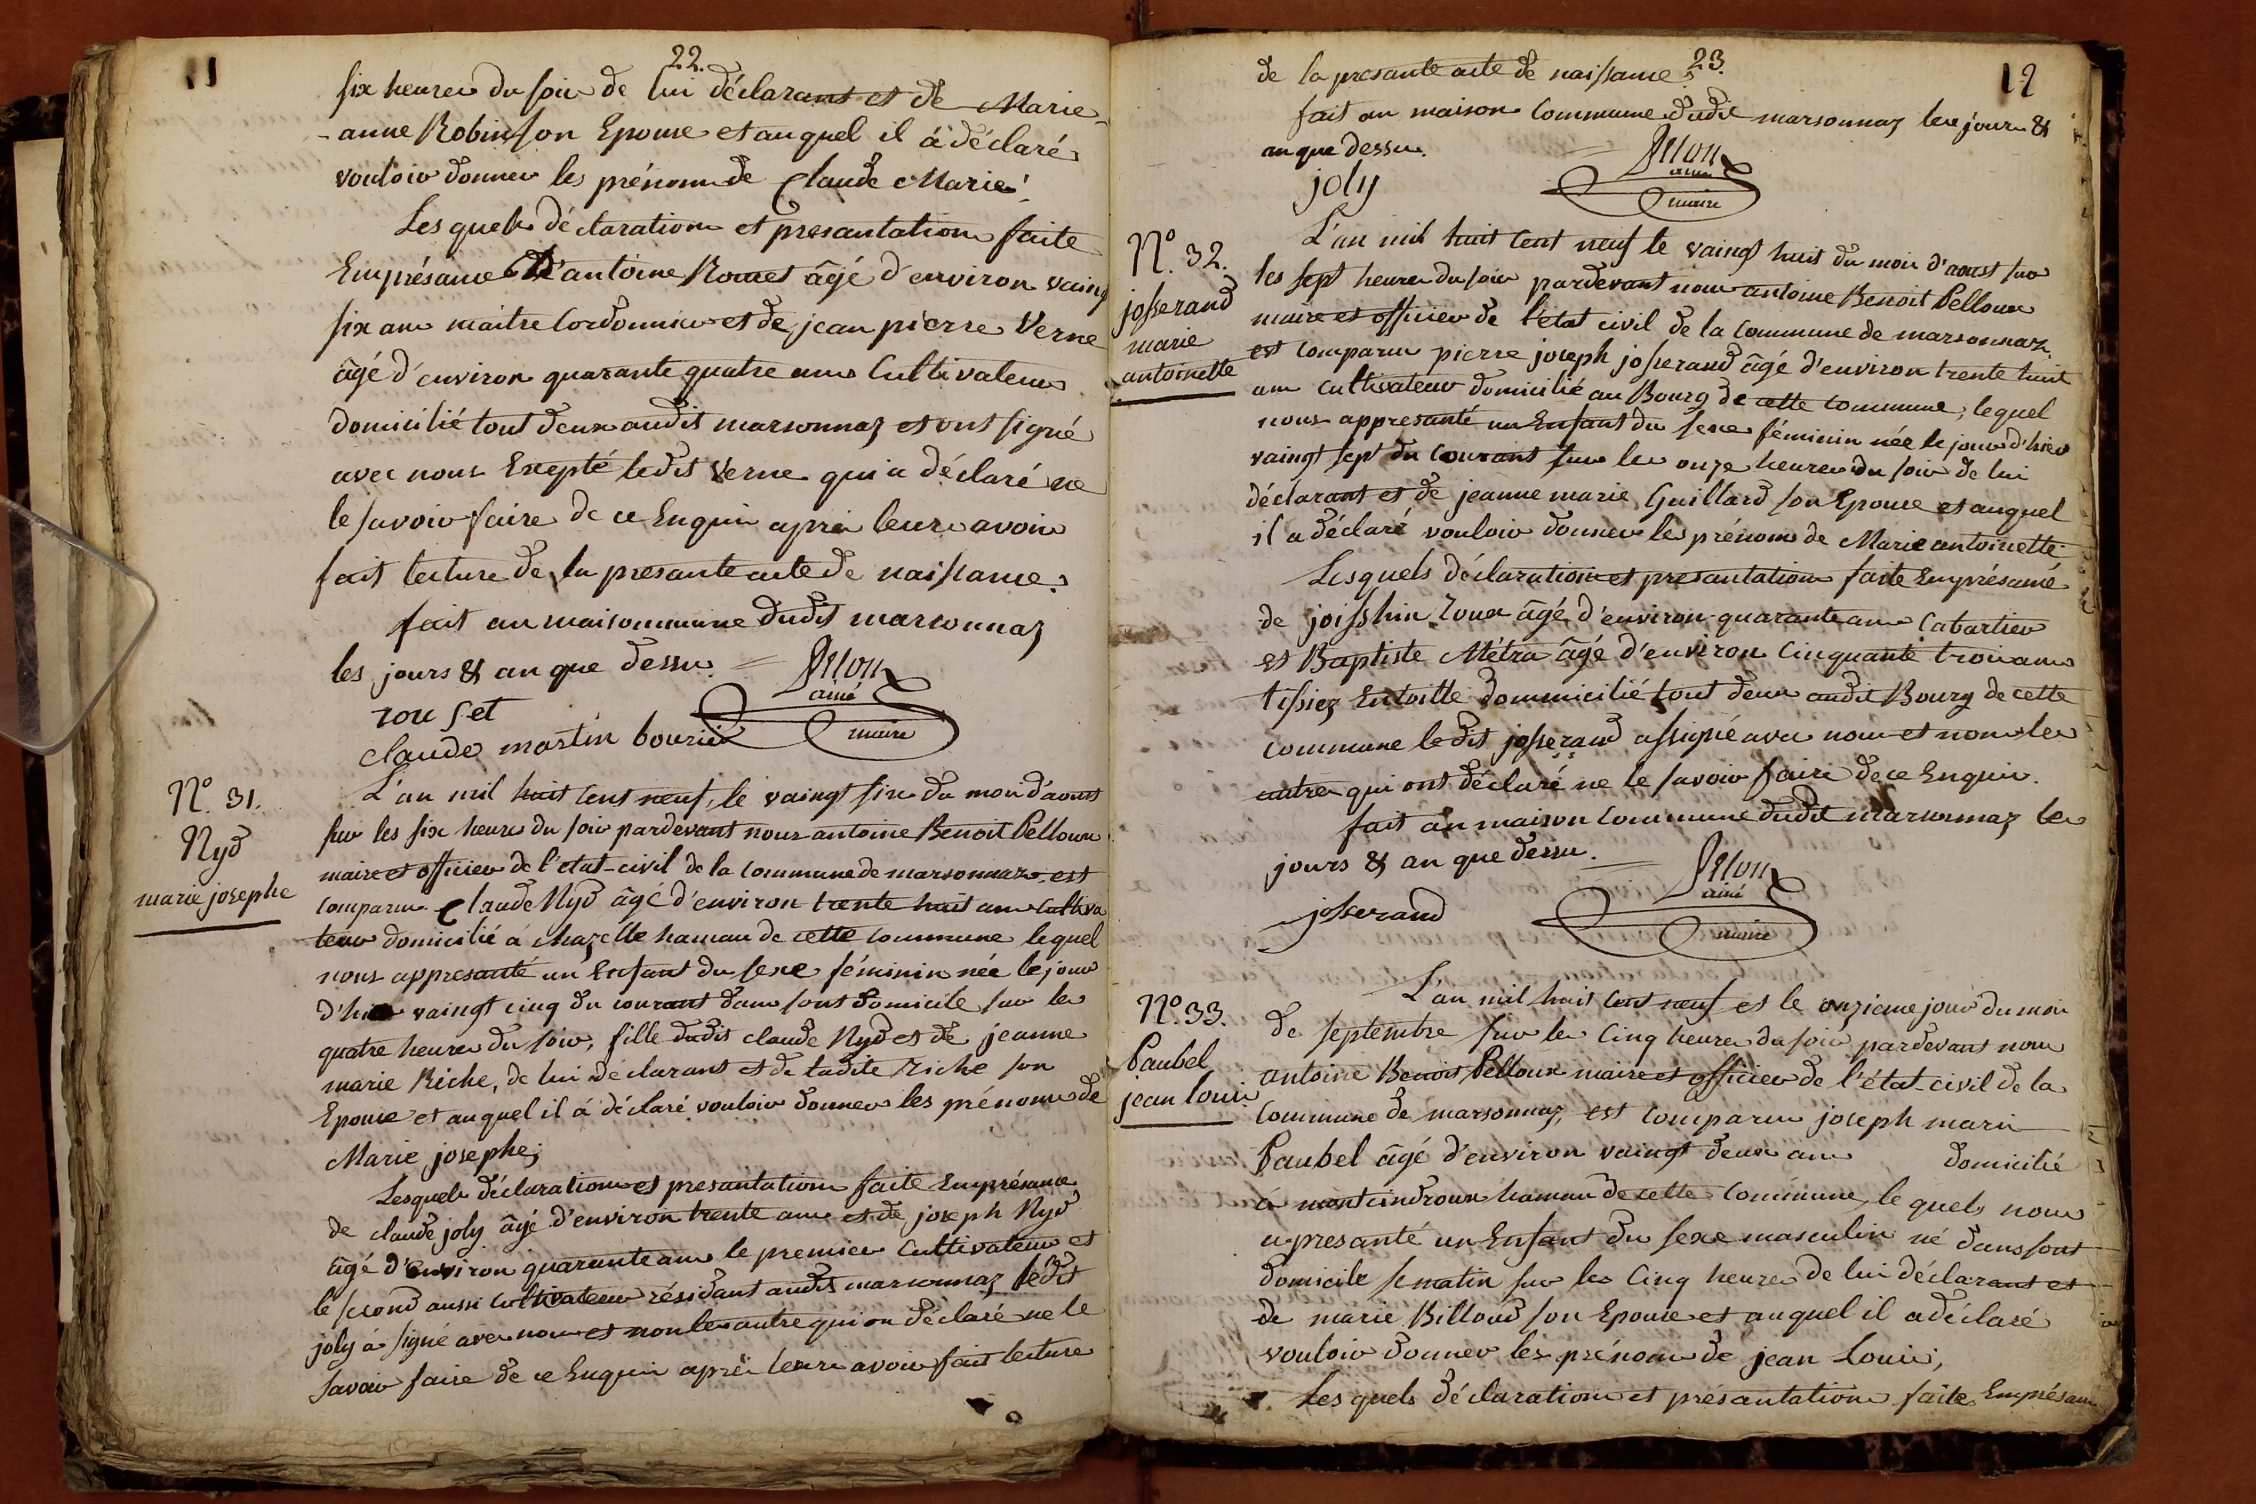 11
22.
six heures du soir de lui déclarant et de Marie
-anne Robin son Epouse et auquel il á déclaré
vouloir donner les prénoms de Claude Marie!
Les quels déclarations et presantations faite
Emprésance D'antoine Rouset âgé d'environ vaing
six ans maitre Cordonnier et de jean pierre Verne
âgé d'environ quarante quatre ans Cultivateur
domicilié tout deux audit marsonnaz et ont signé
avec nous Exepté ledit Verne qui a déclaré ne
le savoir faire de ce Enquis aprés leurs avoir
fait lecture de la presante acte de naissance.
fait au maisommune dudit marsonnaz
les jours & an que dessu. =
ainé
rouset
maire
claude martin bourié
N.º 31.
Nyd
marie josephe
L'an mil huit Cent neuf, le vaingt six du mois d'aoust
sur les six heures du soir pardevant nous antoine Benoit Pelloux
maire et officier de l'état-civil de la Commune de marsonnaz, est
Comparu Claude Nyd âgé d'environ trente huit ans Cultiva
teur domicilié á chazelle hamau de cette Commune lequel
nous appresanté un Enfant du sexe féminin née le jour
d'hier vaingt cinq du courant dans sont domicile sur les
quatre heures du soir, fille dudit claude Nyd et de jeanne
marie Riche, de lui déclarant et de ladite riche son
Epouse et auquel il á déclaré vouloir donner les prénoms de
Marie josephe;
Lesquels déclarations et presantations faite Emprésance
de claude joly âgé d'environ trente ans et de joseph Nyd
âgé d'environ quarante ans le premier Cultivateur et
le second aussi Cultivateur résidant audit marsonnaz ledit
joly á signé avec nous et non les autre qui on déclaré ne le
savoir faire de ce Enquis aprés leurs avoir fait lecture
23.
12
de la presante acte de naissance.
fait au maison Commune dudit marsonnaz les jours &
an que dessu.
ainé
joly
maire
N.º 32.
josserand
marie
antoinette
L'an mil huit Cent neuf le vaingt huit du mois d'aoust sur
les sept heures du soir pardevant nous antoine Benoit Pelloux
maire et officier de l'état civil de la Commune de marsonnaz,
est Comparu pierre joseph josserand âgé d'environ trente huit
ans Cultivateur domicilié au Bourg de cette Commune, lequel
nous appresanté un Enfant du sexe féminin née le jour d'hier
vaingt sept du Courant sur les onze heures du soir de lui
déclarant et de jeanne marie Guillard son Epouse et auquel
il a déclaré vouloir donner les prénoms de Marie antoinette
Lesquels déclarations et presantations faite Emprésance
de roux âgé d'environ quarante ans Cabartier
et Baptiste Métra âgé d'environ Cinquante trois ans
tissiez Entoille dommicilié tout deux audit Bourg de cette
Commune ledit josserand assigné avec nous et non les
autres qui ont déclaré ne le savoir faire de ce Enquis.
fait au maison Commune dudit marsonnaz les
jours & an que dessu.
ainé
josserand
maire
N.º 33.
Paubel
jean louis
L'an mil huit Cent neuf et le onzieme jour du mois
de septembre sur les Cinq heures du soir pardevant nous
antoine Benoit Pelloux maire et officier de l'état-civil de la
Commune de marsonnaz, est Comparu joseph marie
Paubel âgé d'environ vaingt deux ans domicilié
á montcindroux hamau de cette Commune, le quels nous
a presanté un Enfant du sexe masculin né dans sont
domicile le matin sur les Cinq heures de lui déclarant et
de marie Billoud son Epouse et auquel il a déclaré
vouloir donner les prénoms de jean Louis;
Les quels déclarations et présantations faite Emprésan